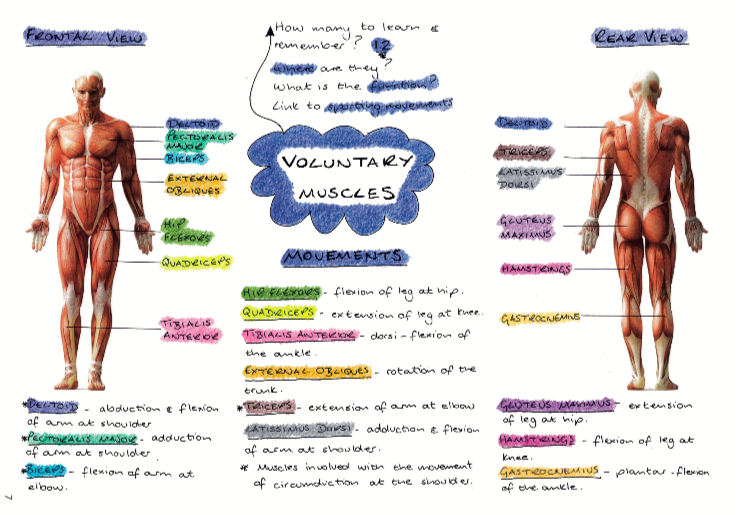 FRONTAL VIEW
How many to learn &
remember? 12
Where are they?
What is the function?
Link to sporting movements
REAR VIEW
DELTOID
PECTORALIS
MAJOR
BICEPS
EXTERNAL
OBLIQUES
HIP
FLEXORS
QUADRICEPS
TIBIALIS
ANTERIOR
VOLUNTARY
MUSCLES
DELTOID
TRICEPS
LATISSIMUS
DORSI
GLUTEUS
MAXIMUS
HAMSTRINGS
GASTROCNEMIUS
MOVEMENTS
HIP FLEXORS - flexion of leg at hip.
QUADRICEPS - extension of leg at knee.
TIBIALIS ANTERIOR - dorsi-flexion of
the ankle.
EXTERNAL OBLIQUES - rotation of the
trunk.
*TRICEPS - extension of arm at elbow
LATISSIMUS DORSI - adduction & flexion
of arm at shoulder.
* Muscles involved with the movement
of circumduction at the shoulder.
*DELTOID - abduction & flexion
of arm at shoulder
*PECTORALIS MAJOR - adduction
of arm at shoulder.
*BICEPS - flexion of arm at
elbow.
GLUTEUS MAXIMUS - extension
of leg at hip.
HAMSTRINGS - flexion of leg at
knee.
GASTROCNEMIUS - plantar-flexion
of the ankle.